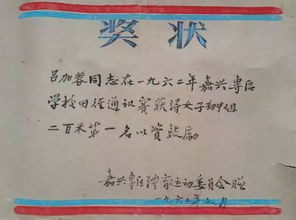 奖状
吕加蓉同志在一九六二年嘉兴专区
学校田径通讯赛获得女子初中组
二百米第一名以资鼓励
嘉兴专区体育运动委员会赠
一九六二年七月